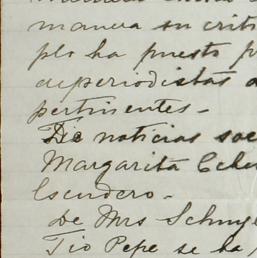 manera su criti
plo ha puesto p
de periodistas a
pertinentes.-
De noticias soc
Margarita Eche
Escudero.-
De Mrs Schuyl
Tio Pepe se ha